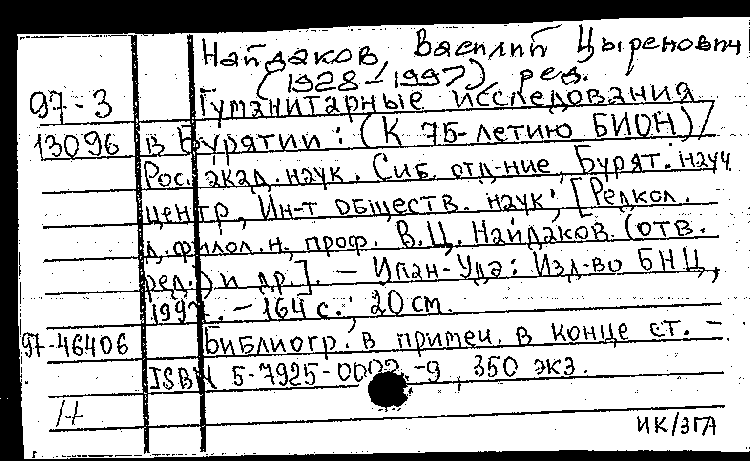 Найдаков, Василий Цыренович
(1928-1997), ред.
97-3 Гуманитарные исследования
13096 в Бурятии: (К 75-летию БИОН) /
Рос. акад. наук. Сиб. отд-ние, Бурят. науч.
центр, Ин-т обществ. наук; [Редкол.
д.филол.н., проф. В.Ц. Найдаков (отв.
ред.) и др.]. - Улан-Удэ: Изд-во БНЦ,
1997. - 164 с.; 20 см.
97-46406 Библиогр. в примеч. в конце ст. -
ISBN 5-7925-000 -9, 350 экз.
ИК/ЗГА